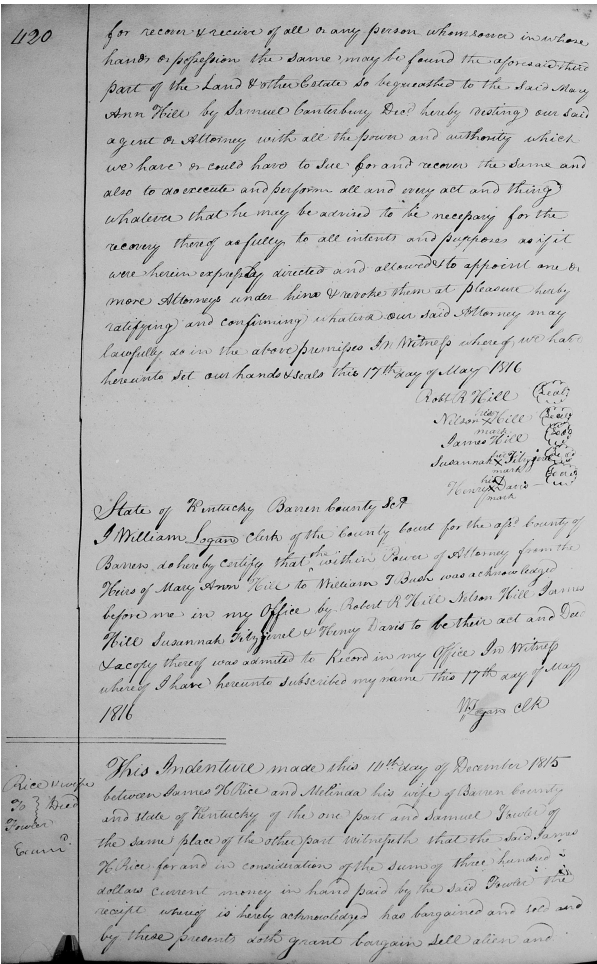 420
for recover & receive of all or any person whomsoever in whose
hands or possession the same may be found the aforesaid third
part of the Land & other Estate so bequeathed to the said Mary
Ann Hill by Samuel Canterbury Decd hereby vesting our said
agent or Attorney with all the power and authority which
we have or could have to sue for and recover the same and
also to do execute and perform all and every act and thing
whatever that he may be advised to be necessary for the
recovery thereof as fully to all intents and purposes as if it
were herein expressly directed and allowed & to appoint one or
more Attorneys under him & revoke them at pleasure hereby
ratifying and confirming whatever our said Attorney may
lawfully do in the above premisses In Witness whereof we have
hereunto set our hands & seals this 17th day of May 1816
Robt R Hill Seal
Nelson his X mark Hill Seal
James Hill Seal
Susannah her X mark Seal
Henry his X mark Davis Seal
State of Kentucky Barren County Sct
I William Logan clerk of the County Court for the afsd County of
Barren, do hereby certify that the within Power of Attorney from the
Heirs of Mary Ann Hill to William T Bush was acknowledged
before me in my Office by Robert R Hill Nelson Hill James
Hill Susannah & Henry Davis to be their act and Deed
& a copy thereof was admited to Record in my Office In Witness
whereof I have hereunto subscribed my name this 17th day of May
1816 W Logan Clk
Rice & wife
To } Deed
Fowler
This Indenture made this 14th day of December 1815
between James H. Rice and Melinda his wife of Barren County
and state of Kentucky of the one part and Samuel Fowler of
the same place of the other part witnesseth that the said James
H. Rice for and in consideration of the sum of three hundred
dollars current money in hand paid by the said Fowler the
receipt whereof is hereby acknowledged has bargained and sold and
by these presents doth grant bargain sell alien and